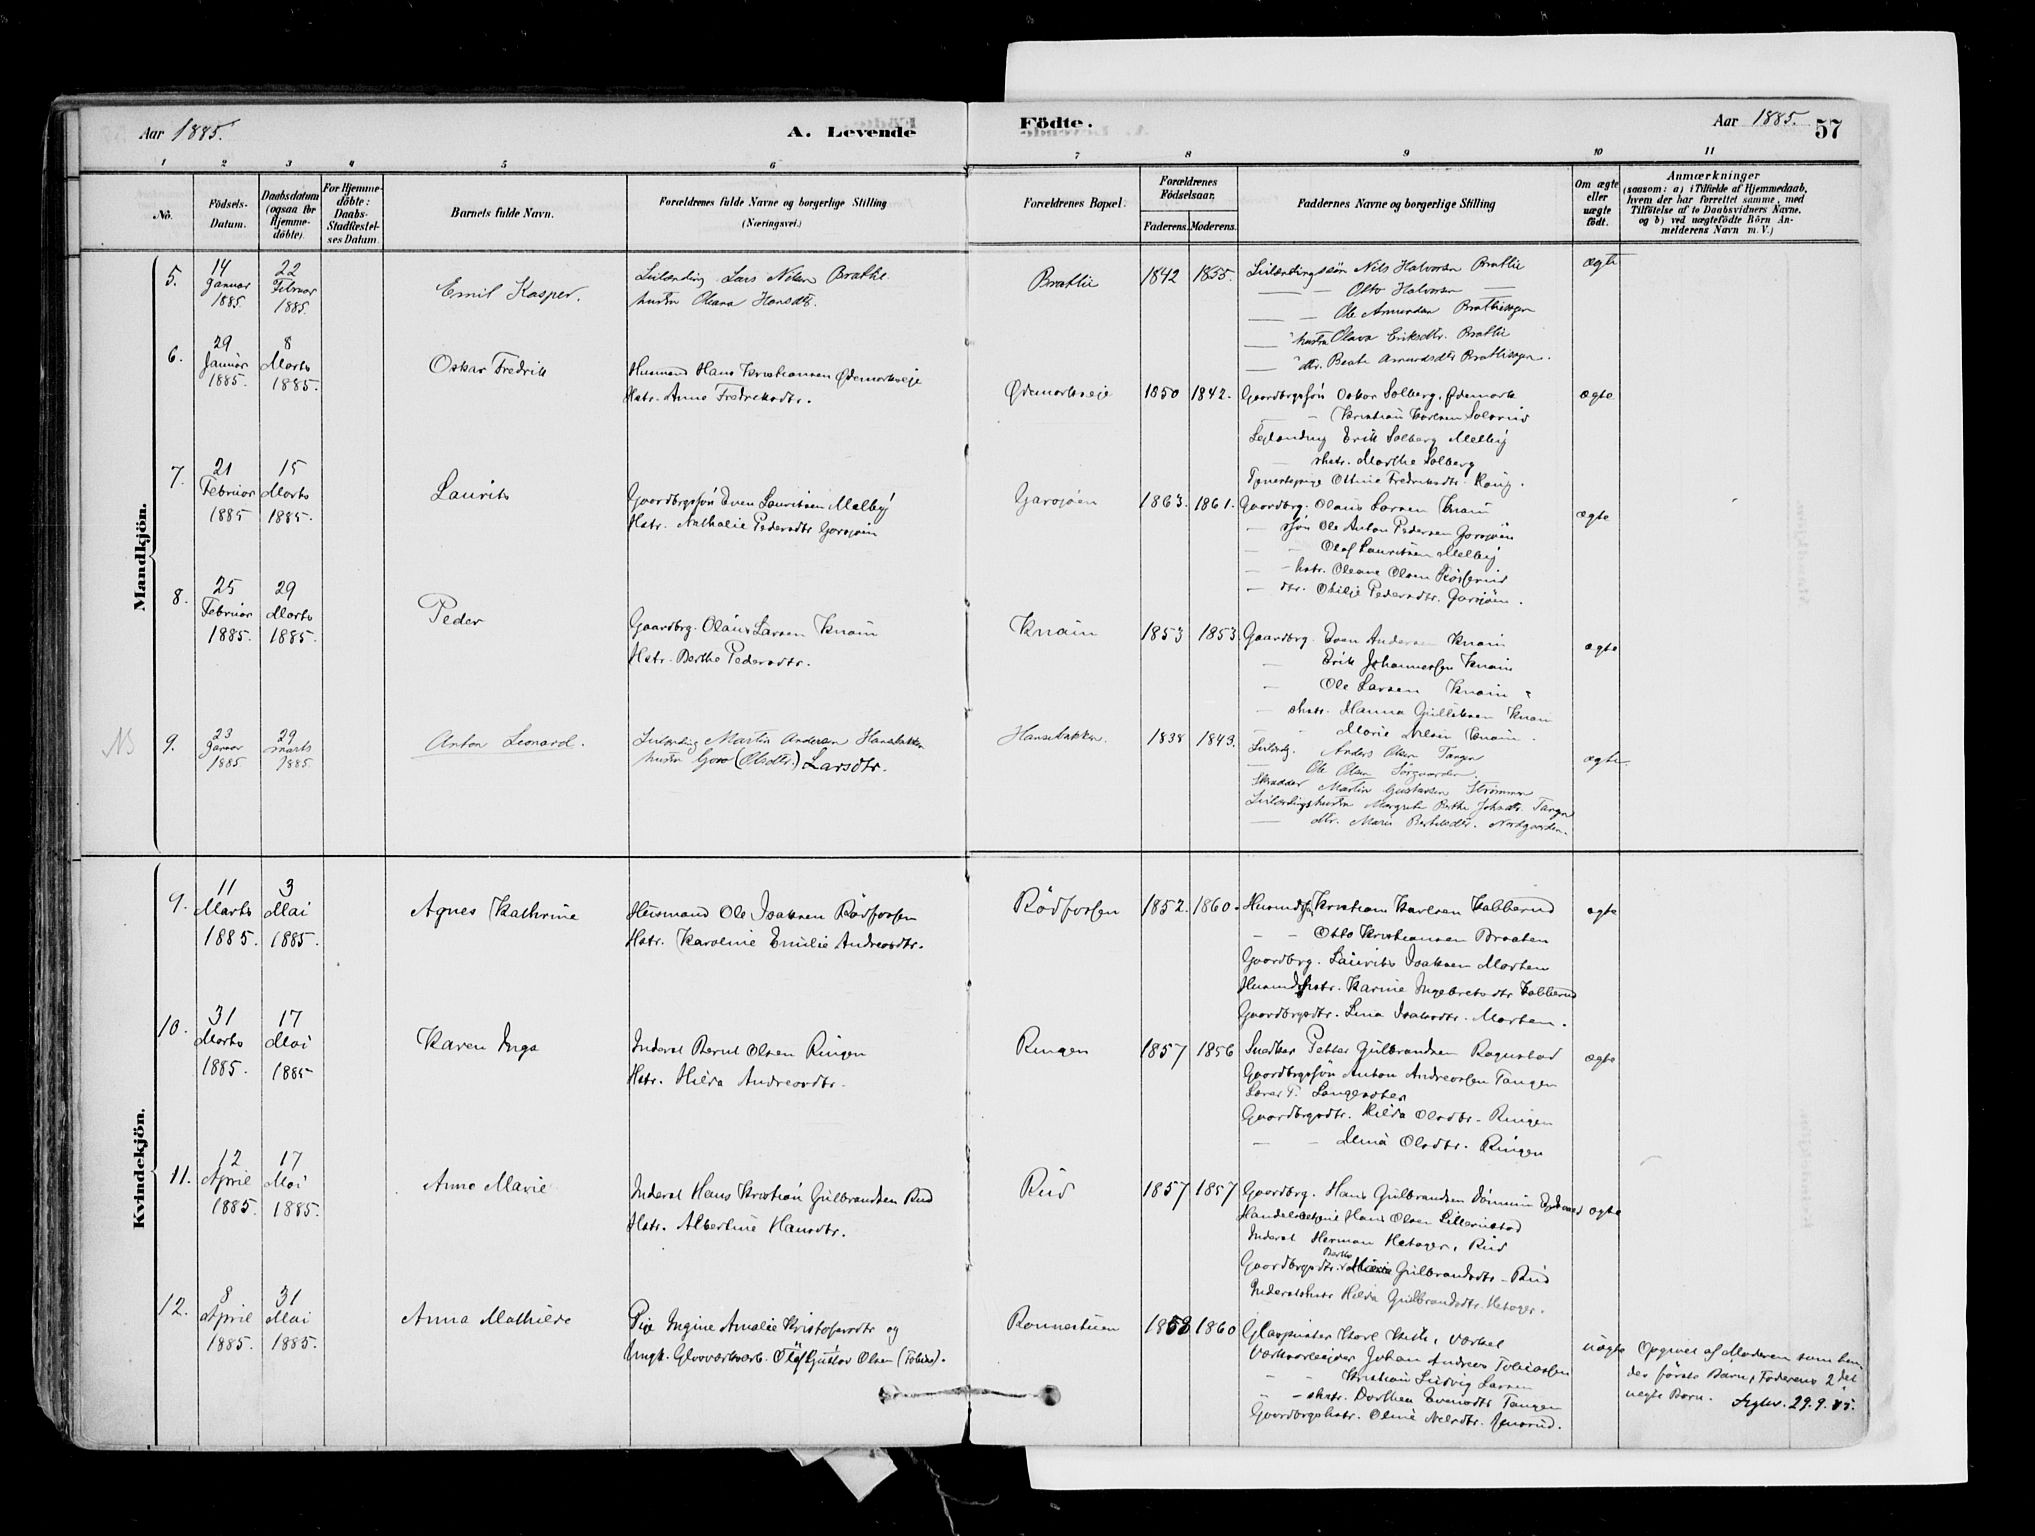 Aar 1885.
A. Levende
Födte.
Aar 1885.
57
1 2 3 4 5 6 7 8 9 10 11
No.
Födsels-Datum.
Daabsdatum (ogsaa for Hjemme-döbte).
For Hjemme-döbte: Daabs-Stadfæstel-ses Datum
Barnets fulde Navn.
Forældrenes fulde Navne og borgerlige Stilling
(Næringsvei.)
Forældrenes Bopæl.
Forældrenes Födselsaar.
Faderens. Moderens.
Faddernes Navne og borgerlige Stilling
Om ægte eller uægte födt.
Anmærkninger
(saasom: a) i Tilfælde af Hjemmedaab,
hvem der har forrettet samme, med
Tilföielse af to Daabsvidners Navne.
og b) ved uægtefödte Börn An-
melderens Navn m. V.)
Mandkjön.
5. 14 Januar 1885. 22 Februar 1885. Emil Kasper.
Lars Brathe
hustru Oleana Hansdtr.
Brathe 1842 1835. Nils Halvorsen Brathe ægte
Otto Halvorsen
Ole Amundsen
hustru Olava Eriksdtr. Brathe
dtr. Beate
6. 29 Januar 1885. 8 Marts 1885. Oskar Fredrik
Husmand Hans Kristiansen Ødemarkseje
Hstr. Anne Fredriksdtr.
Ødemarkseje 1850 1842. Gaardbrgssøn Oskar Solberg, Ødemark ægte
Kristian Karlsen
Erik Solberg Melby
shstr. Marthe Solberg
Ottine Fredriksdtr.
7. 21 Februar 1885 15 Marts 1885. Laurits
Gaardbrgssøn Even Lauritsen Melby
Hstr. Nathalie Pedersdtr Garsjøen
Garsjøen 1863. 1861. Gaardbrg. Olaus Larsen Knain ægte
søn Ole Anton Pedersen Garsjøen
Olaf Lauritsen Melby
hstr. Oleane Olsen
dtr. Othilje Pedersdtr. Garsjøen.
8. 25 Februar 1885. 29 Marts 1885. Peder
Gaardbrg. Olaus Larsen Knain
Hstr. Berthe Pedersdtr.
Knain 1853 1853 Gaardbrg. Even Andersen Knain ægte
Erik Johannessen Knain
Ole Larsen Knain
shstr. Hanna Gulliksen Knain
Marie Nilsen Knain.
NB 9. 23 Januar 1885 29 marts 1885. Anton Leonard.
Martin Andersen Hansebakken
hustru Goro (Olsdtr.) Larsdtr.
Hansebakken. 1838 1843. Anders Olsen Tangen ægte.
Ole Olsen Sørgaarden.
Skrædder Martin Gustavsen Strømmen
Margrete Berthe Johsdtr. Tangen
dtr. Maren Bertelsdtr. Nordgaarden.
Kvindekjön.
9. 11 Marts 1885. 3 Mai 1885. Agnes Kathrine
Husmand Ole Isaksen Rødfossen
Hstr. Karoline Emilie Andreasdtr.
Rødfossen 1852. 1860. Husmdssøn Kristian Karlsen Kabberud ægte
Otto Kristiansen Braaten
Gaardbrg. Laurits Isaksen Morten
Husmdshstr. Karine Ingebretsdtr Kabberud
Gaardbrgsdtr. Lina Isaksdtr. Morten.
10. 31 Marts 1885. 17 Mai 1885 Karen Inga
Inderst Bernt Olsen Ringen
Hstr. Hilda Andreasdtr.
Ringen 1857 1856 Snedker Petter Gulbrandsen Rognstad ægte
Gaardbrgssøn Anton Andreassen Tangen
Lærer T. Langesæter
Gaardbrgsdtr. Hilda Olsdtr. Ringen
Olsdtr. Ringen
11. 12 April 1885. 17 Mai 1885. Anne Marie
Inderst Hans Kristian Gulbrandsen Rud
Hstr. Albertine Hansdtr.
Rud 1857 1857 Gaardbrg. Hans Gulbrandsen ægte
Hans Olsen Lillerustad
Inderst Herman Rud
Gaardbrgsdtr. Berthe Marie Gulbrandsdtr. Rud
Indersthstr Hilda Gulbrandsdtr.
12. 8 April 1885. 31 Mai 1885. Anna Mathilde
Pige Ingine Amalie Kristofersdtr og
Ungk. Glasværksarb. Olaf Gustav Olsen (Tobias).
Ronnestuen 1853 1860 Glaspuster Karl Værket uægte
Værksarbejder Johan Andreas Tobiassen
Kristian Ludvig Larsen
shstr. Dorthea Evensdtr Tangen
Gaardbrgshstr. Oline Nilsdtr.
Opgivet af Moderen som hen-
des første Barn, Faderens 2det
uægte Barn. 29.9.85.